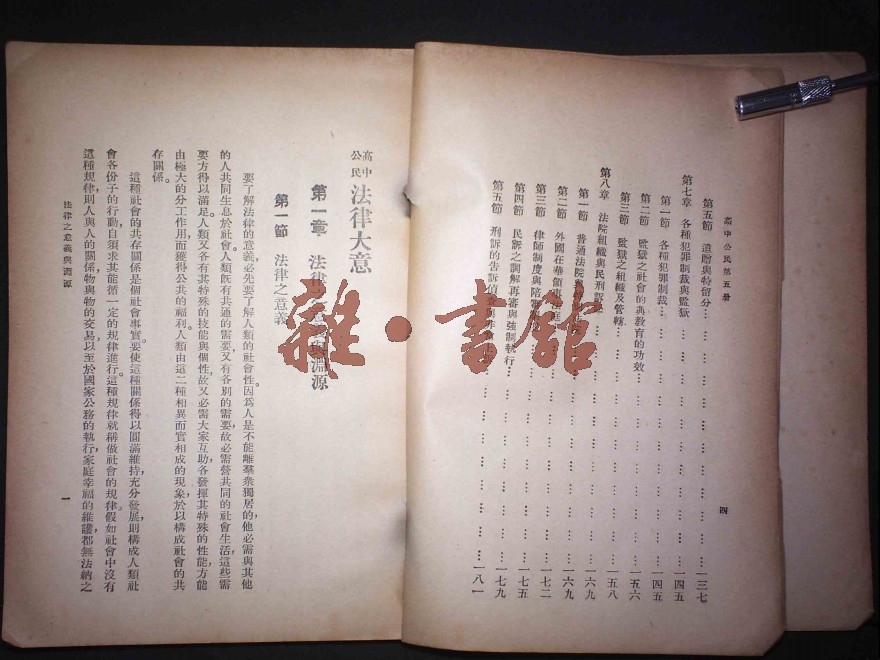 高中公民第五册
四
第五節 遺贈與特留分 一三七
第七章 各種犯罪制裁與監獄 一四五
第一節 各種犯罪制裁 一四五
第二節 監獄之社會的與教育的功效 一五六
第三節 監獄之組織及管轄 一五八
第八章 法院組織與民刑訴 一六九
第一節 普通法院 一六九
第二節 外國在華領事法庭 一七二
第三節 律師制度與陪審
第四節 民訴之調解再審與強制執行 一七五
第五節 刑訴的告訴偵 一七九
一八一
高中公民 法律大意
第一章 法律之意義與淵源
第一節 法律之意義
要了解法律的意義必先要了解人類的社會性因爲人是不能離羣衆獨居的,他必需與其他
的人共同生息於社會。人類既有共通的需要又有各別的需要,故必需營共同的社會生活,這些需
要方得以滿足。人類又各有其特殊的技能與個性,故又必需大家互助,各發揮其特殊的性能,方能
由極大的分工作用,而獲得公共的福利。人類由這二種相異而實相成的現象,於以構成社會的共
存關係。
這種社會的共存關係是個社會事實。要使這種關係得以圓滿維持,充分發展,則構成人類社
會各份子的行動,自須求其能循一定的規律進行。這種規律就稱做社會的規律。假如社會中沒有
這種規律則人與人的關係,物與物的交易,以至於國家公務的執行,家庭幸福的維護,都無法納之
法律之意義與淵源
一
雜·書館